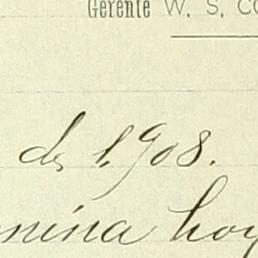 Gerente W. S. CO
de 1.908.
mina hoy